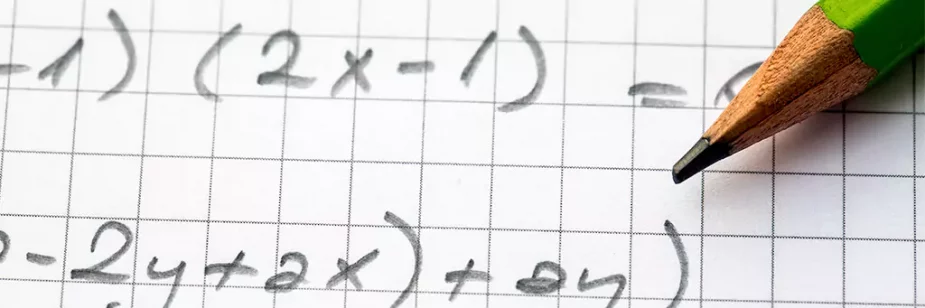 -1) (2x-1) =
-2y+2x)+2y)